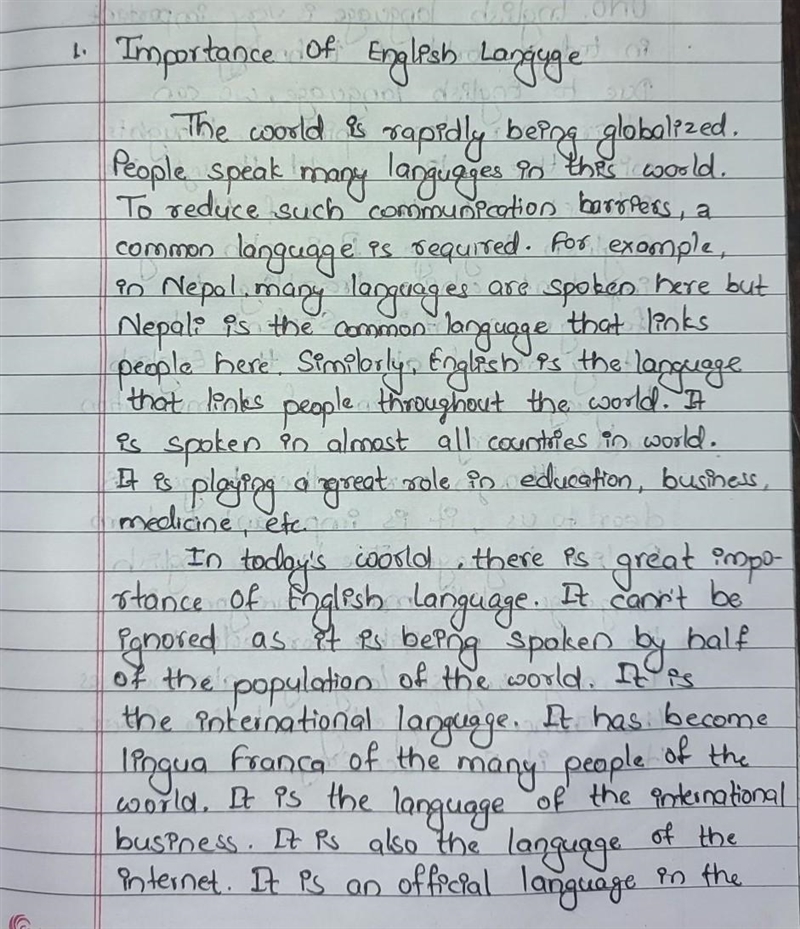 1. Importance Of English Languge
The world is rapidly being globalized.
People speak many languages in this world.
To reduce such communication barriers, a
common language is required. For example,
in Nepal, many languages are spoken here but
Nepali is the common language that links
people here. Similarly, English is the language
that links people throughout the world. It
is spoken in almost all countries in world.
It is playing a great role in education, business,
medicine, etc.
In today's world, there is great impo-
rtance of English language. It cann't be
ignored as it is being spoken by half
of the population of the world. It is
the international language. It has become
lingua franca of the many people of the
world. It is the language of the international
business. It is also the language of the
internet. It is an official language in the